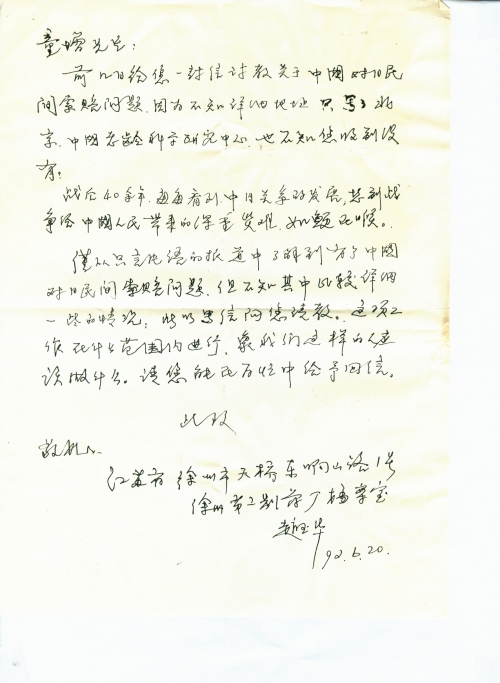 童增先生:
前几日给您一封信请教关于中国对日民
间索赔问题,因为不知详细地址只写了北
京,中国老龄科学研究中心,也不知您收到没
有?
战后40年,每每看到中日关系的发展,想到战
争给中国人民带来的灾难,如
仅从只言片语的报道中了解到有了中国
对日民间索赔问题,但不知其中比较详细
一些的情况,所以写信向您请教。这项工
作在什么范围内进行,象我们这样的人应
该做什么。请您能在百忙中给予回信。
此致
敬礼
江苏省徐州市天桥东响山路1号
徐州第二制药厂档案室
赵玉华
92.6.20.